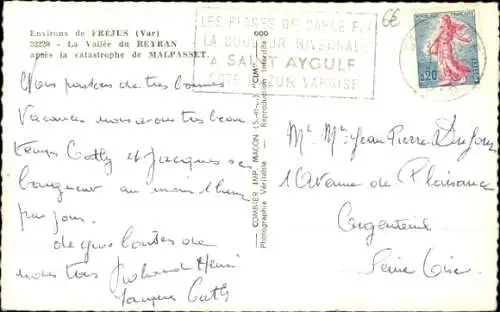 Environs de FRÉJUS (Var)
22229 - La Vallée du REYRAN
après la catastrophe de MALPASSET.
LES PLAGES DE SABLE FIN
LA DOUCEUR
A SAINT AYGULF
COTE D'AZUR VAROISE
66
0,20
Nous passons de très bonnes
Vacances nous avons très beau
temps Catty et Jacques se
baignent au moins 1 heure
par jour.
de
nous tous
Jacques Catty
COMBIER IMP. MACON (S.-et-L.) "CIM"
Photographie Véritable Reproduction Interdite
Mr Me Jean Pierre Dufour
1 Avenue de Plaisance
Argenteuil
Seine Oise